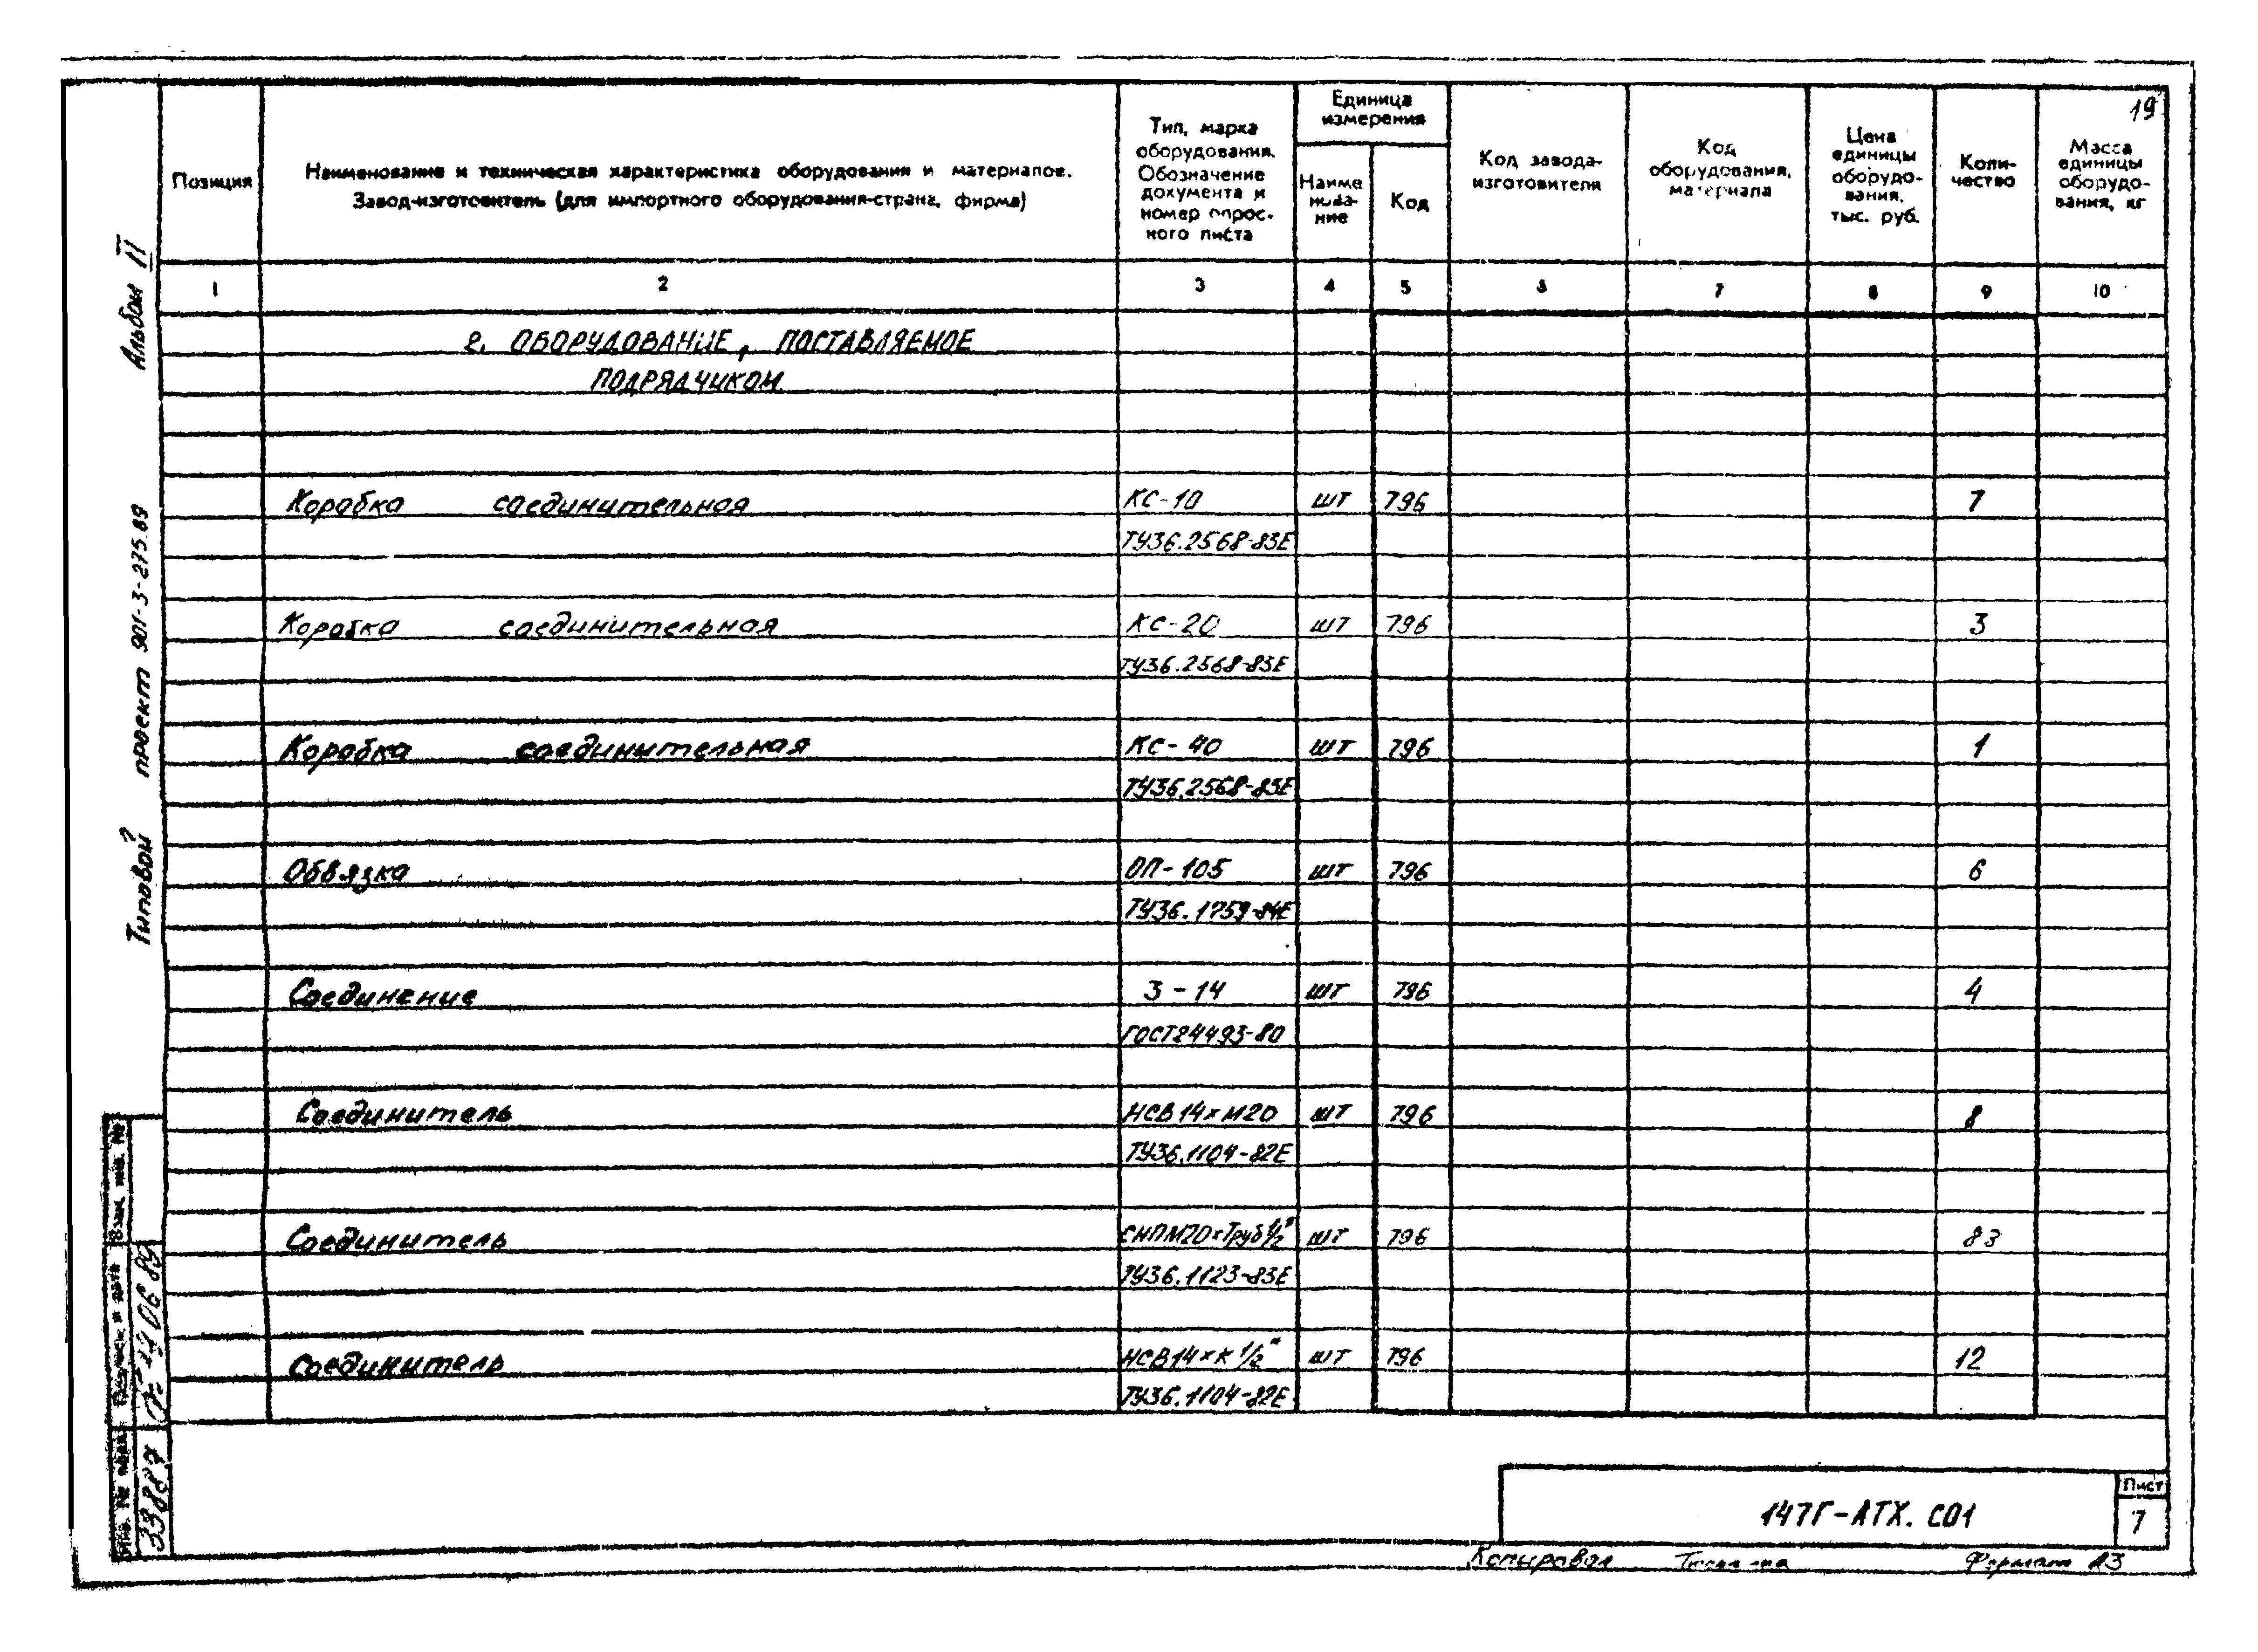 19
Позиция
Наименование и техническая характеристика оборудования и материалов.
Завод-изготовитель (для импортного оборудования-страна, фирма)
Тип, марка
оборудования.
Обозначение
документа и
номер опрос-
ного листа
Единица
измерения
Наиме
нова-
ние
Код
Код завода-
изготовителя
Код
оборудования,
материала
Цена
единицы
оборудо-
вания,
тыс. руб.
Коли-
чество
Масса
единицы
оборудо-
вания, кг
1 2 3 4 5 6 7 8 9 10
2. ОБОРУДОВАНИЕ, ПОСТАВЛЯЕМОЕ
ПОДРЯДЧИКОМ
Коробка соединительная КС-10 шт 796 7
ТУ36.2568-83Е
Коробка соединительная КС-20 шт 796 3
ТУ36.2568-83Е
Коробка соединительная КС-40 шт 796 1
ТУ36.2568-83Е
Обвязка ОП-105 шт 796 6
ТУ36.1759-84Е
Соединение 3-14 шт 796 4
ГОСТ24493-80
Соединитель НСВ14×М20 шт 796 8
ТУ36.1104-82Е
Соединитель СНПМ20×Труб1/2" шт 796 83
ТУ36.1123-83Е
Соединитель НСВ14×К1/2" шт 796 12
ТУ36.1104-82Е
Типовой проект 901-3-275.89 Альбом II
Взам. инв. №
Подпись и дата
Инв. № подл.
33887
147Г-АТХ. СО1
Лист
7
Копировал
Формат А3